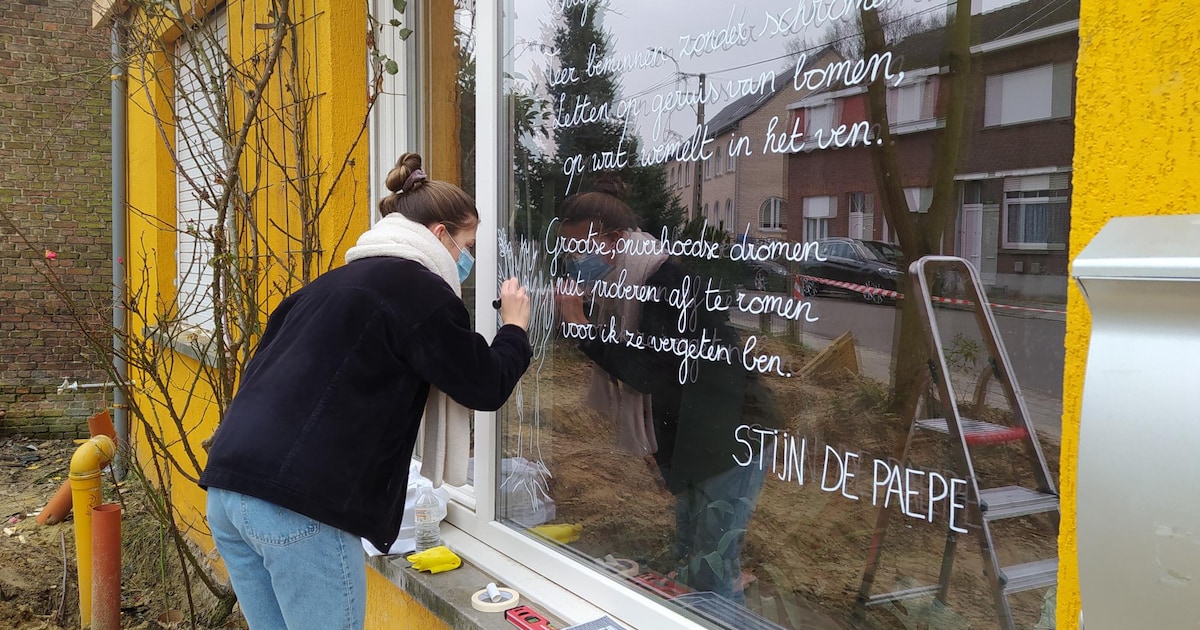 Teer beminnen zonder schromen
Letten op geruis van bomen,
op wat wemelt in het ven.
Grootse, onverhoedse dromen
niet proberen af te romen
voor ik ze vergeten ben.
STIJN DE PAEPE